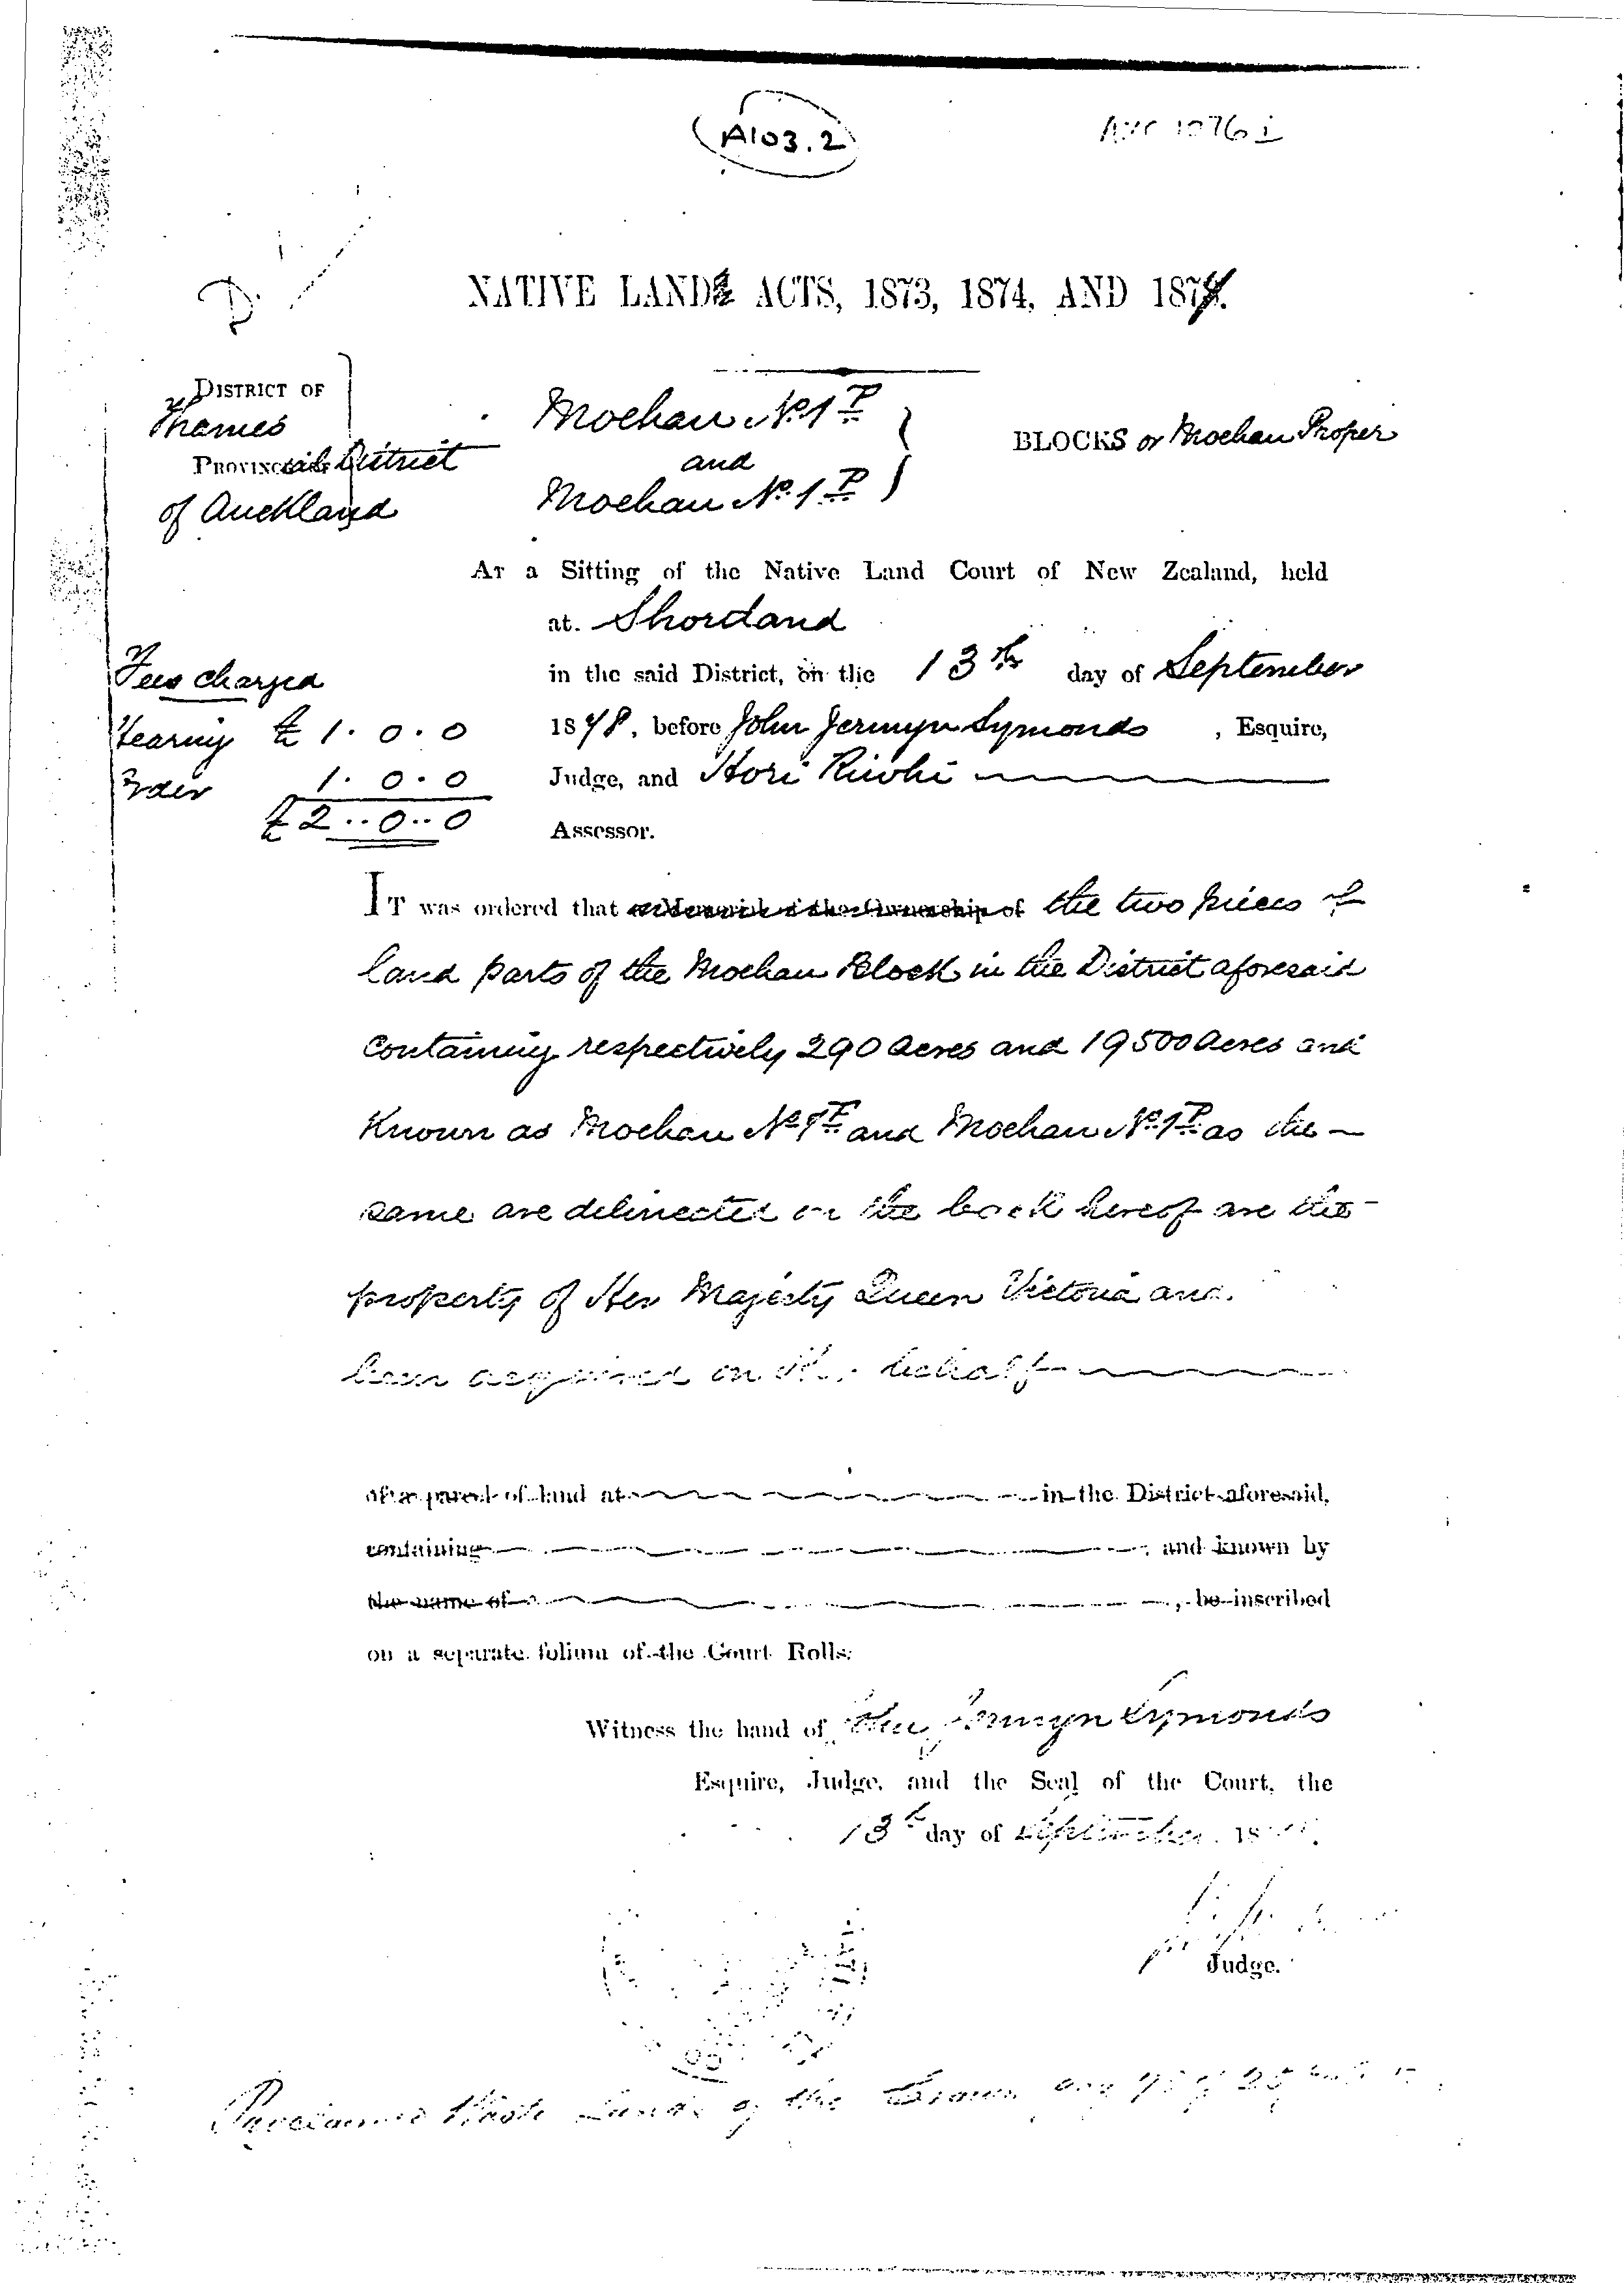 A103.2
NATIVE LAND ACTS, 1873, 1874, AND 187
DISTRICT OF
Thames
PROVINCIAL District
of Auckland
Moehau No. 1
and
Moehau No. 1
BLOCKS or Moehau Proper
AT a Sitting of the Native Land Court of New Zealand, held
at Shortland
in the said District, on the 13th day of September
1878, before John Jermyn Symonds, Esquire,
Judge, and Hori
Assessor.
Fees charged
Hearing £1.0.0
Order 1.0.0
£2..0..0
IT was ordered that the two pieces of
land parts of the Moehau Block in the District aforesaid
containing respectively 290 Acres and 19500 Acres and
Known as Moehau No. 1 and Moehau No. 1 as the
same are delineated on the back hereof are the
property of Her Majesty Queen Victoria and
been acquired on behalf
of a parcel of land at in the District aforesaid,
containing , and known by
the name of , be inscribed
on a separate folium of the Court Rolls.
Witness the hand of John Jermyn Symonds
Esquire, Judge, and the Seal of the Court, the
13th day of September 18
Judge.
Waste Lands of the Crown